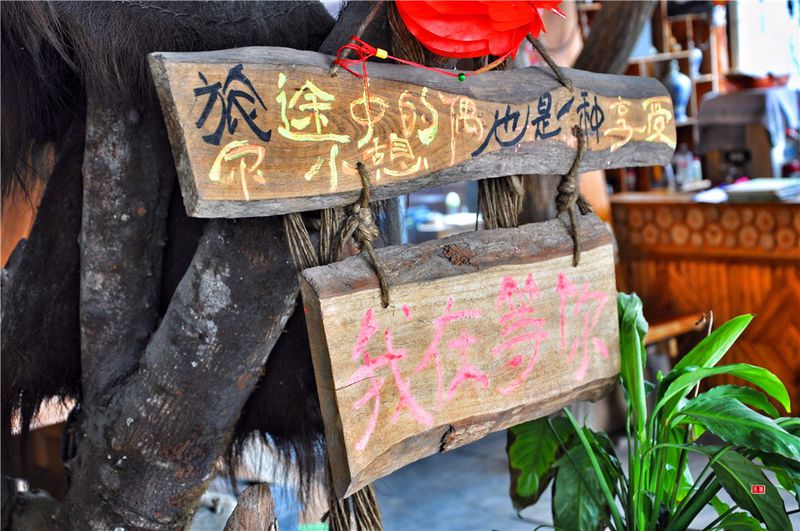 旅途中的偶也是一种享受
你小想
我在等你